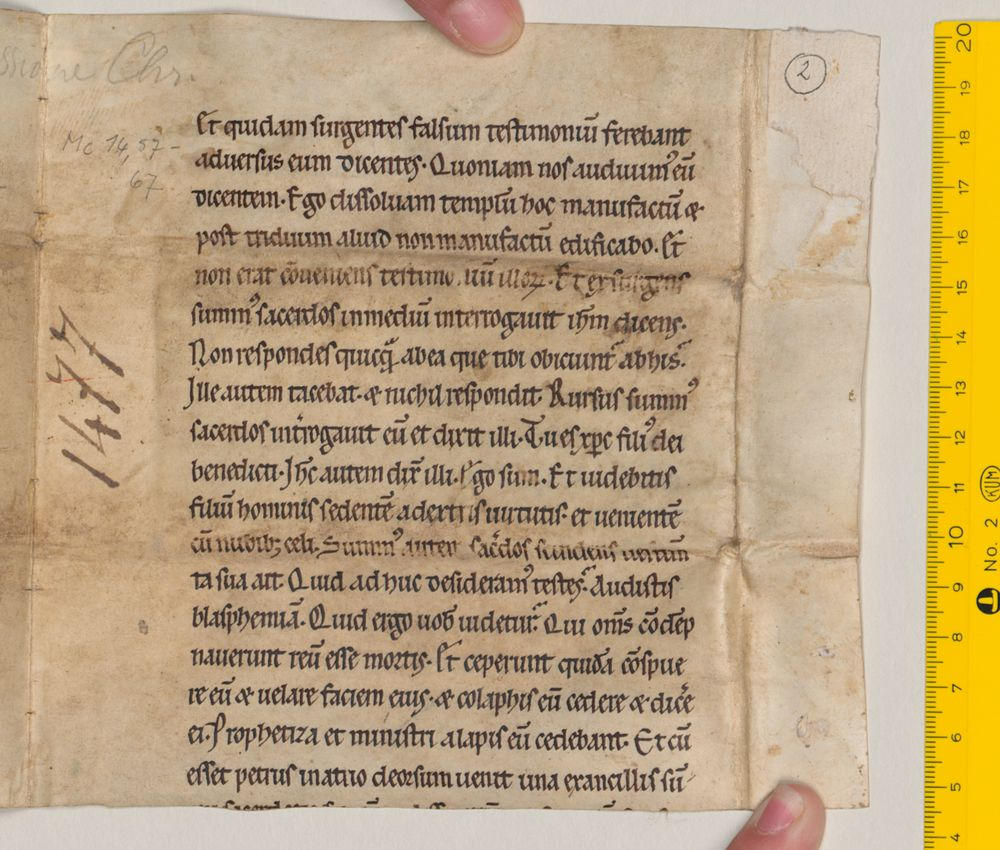 ssione Chr.
2
Mc 14,57-
67
1477
Et quidam surgentes falsum testimoniū ferebant
aduersus eum dicentes. Quoniam nos audiuimꝰ eū
dicentem. Ego dissoluam templū hoc manufactū &
post triduum aliud non manufactū edificabo. Et
non erat cōueniens testimoniū illoꝝ. Et exsurgens
summꝰ sacerdos in mediū interrogauit ihm̄ dicens.
Non respondes quicq̄ ad ea que tibi obiciunt᷑ ab his.
Ille autem tacebat. & nichil respondit. Rursus summꝰ
sacerdos int̓rogauit eū et dixit illi. Tu es xp̄c filiꝰ dei
benedicti. Ih̄c autem dix̄ illi. Ego sum. Et uidebitis
filiū hominis sedentē a dextris uirtutis et uenientē
cū nubibꝫ celi. Summꝰ autem sac̓dos scindens uestim
ta sua ait Quid adhuc desideramꝰ testes. Audistis
blasphemiā. Quid ergo uob̄ uidetur. Qui om̄s cōdēp
nauerunt reū esse mortis. Et ceperunt quidā cōspue
re eū & uelare faciem eius. & colaphis eū cedere & dic̓e
ei. Prophetiza et ministri alapis eū cedebant. Et cū
esset petrus in atrio deorsum uenit una ex ancillis sū
20
19
18
17
16
15
14
13
12
11
10
9
8
7
6
5
4
KUM
No. 2